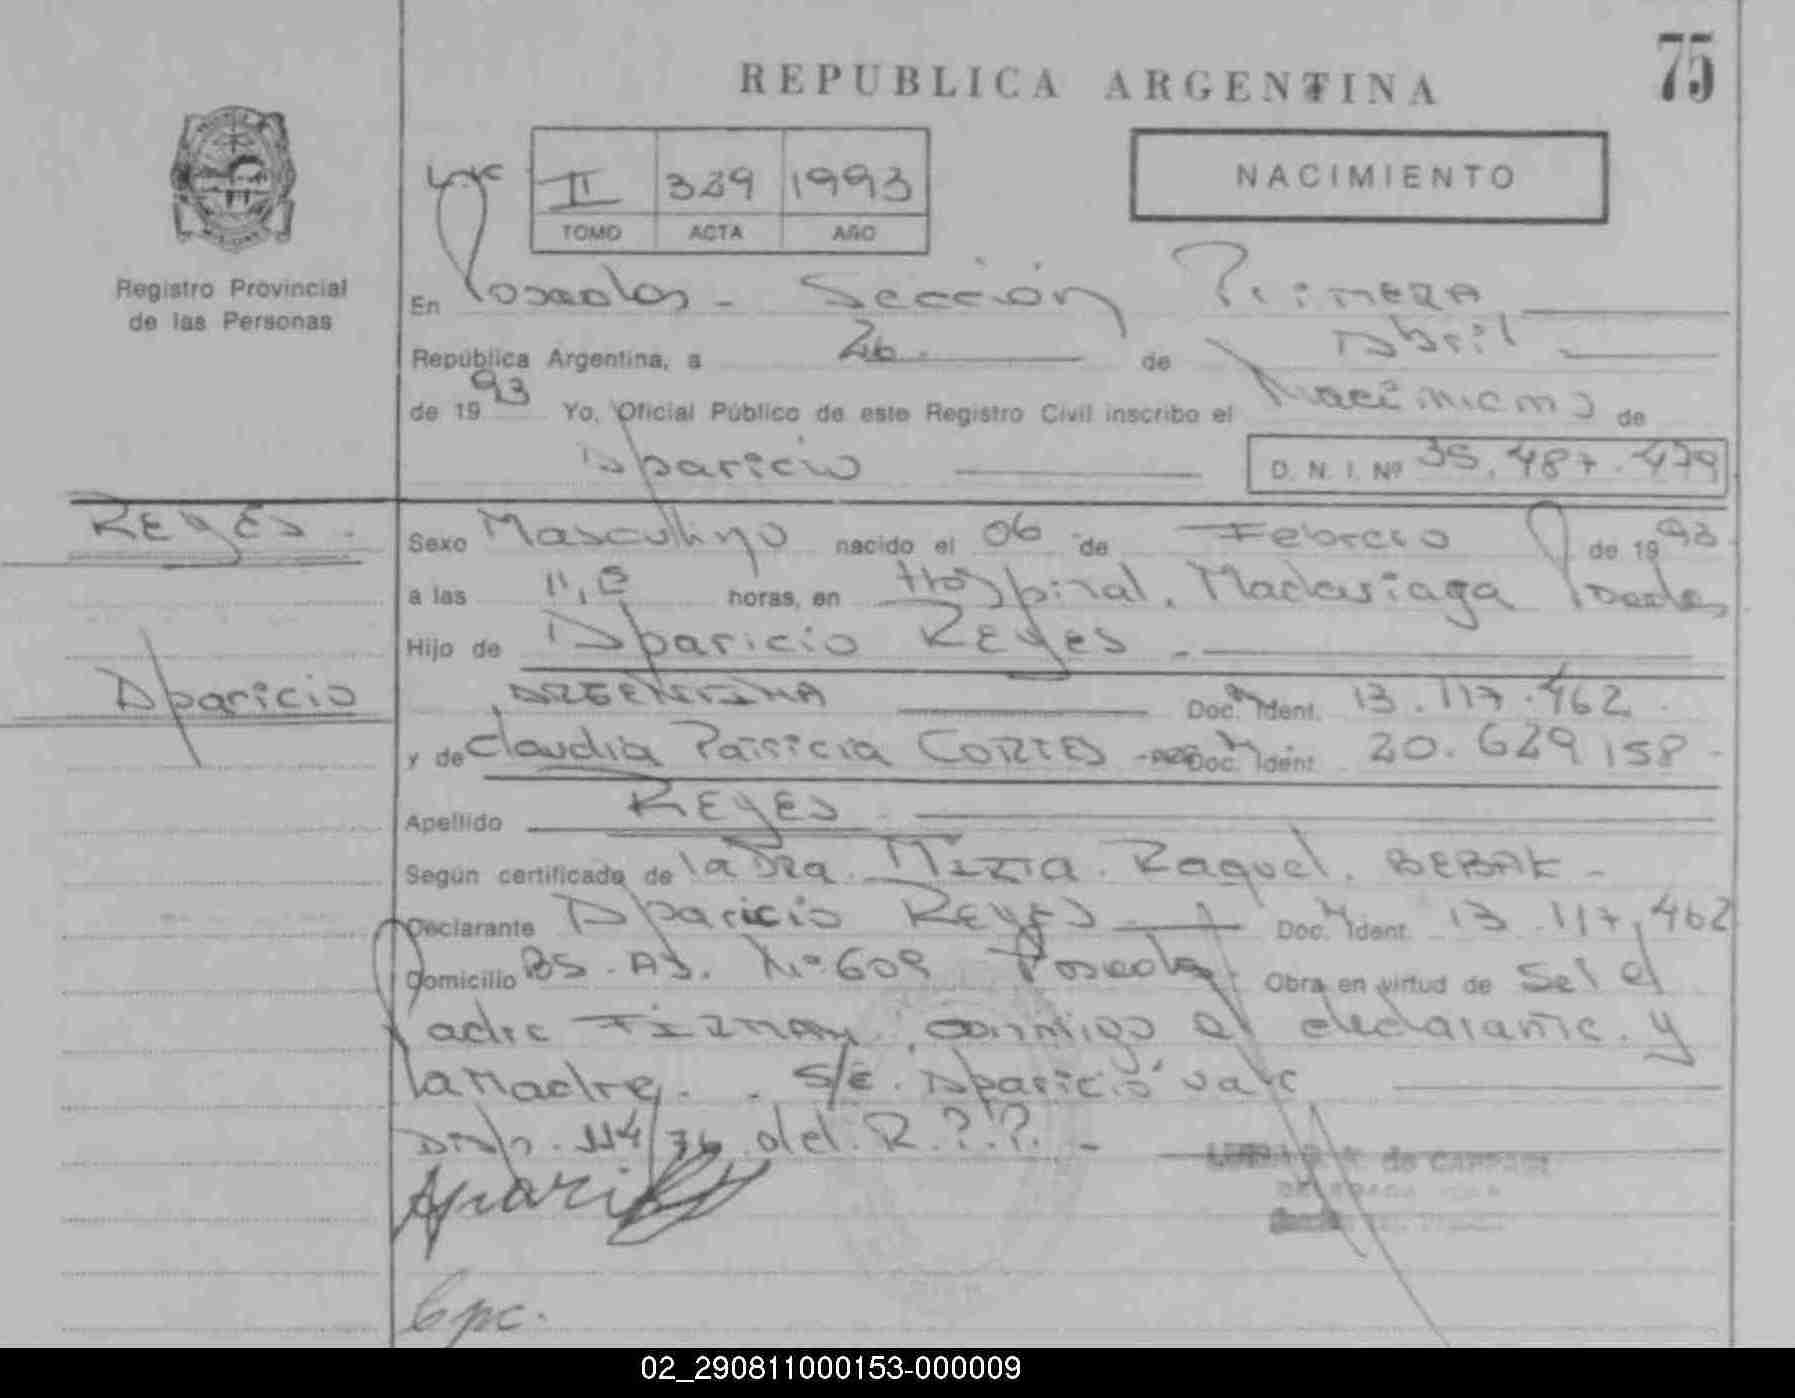 75
REPUBLICA ARGENTINA
II 329 1993
TOMO ACTA AÑO
NACIMIENTO
Registro Provincial
de las Personas
En Posadas - Sección Primera
República Argentina, a 26 de Abril
de 1993 Yo, Oficial Público de este Registro Civil inscribo el Nacimiento de
Aparicio D. N. I. Nº 35.487.479
REYES.
Sexo Masculino nacido el 06 de Febrero de 1993
a las horas, en Hospital. Madariaga Posadas
Hijo de Aparicio REYES -
Aparicio
ARGENTINA Doc. Ident. 13.117.462.
y de Claudia Patricia CORTES - Doc. Ident. 20.629 158 -
Apellido REYES
Según certificado de la Dra. Raquel. BEBAK -
Declarante Aparicio REYES Doc. Ident. 13.117.462
Domicilio BS. AS. Nº 609 Posadas Obra en virtud de Ser el
Padre FIRMAN conmigo el declarante. y
la Madre. - S/E. "Aparicio" vale
114/76 del R.
de
Cpc.
02_290811000153-000009